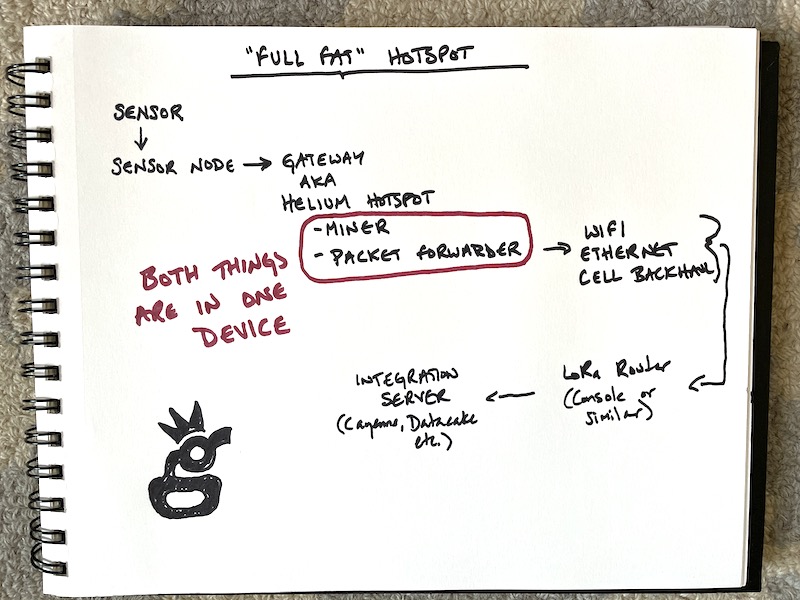 "FULL FAT" HOTSPOT
SENSOR
SENSOR NODE
GATEWAY
AKA
HELIUM HOTSPOT
- MINER
- PACKET FORWARDER
WIFI
ETHERNET
CELL BACKHAUL
BOTH THINGS
ARE IN ONE
DEVICE
LoRa Router
(Console or
similar)
INTEGRATION
SERVER
(Cayenne, Datacake
etc.)